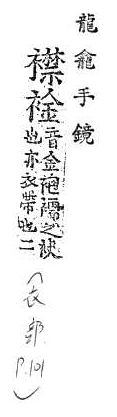 龍龕手鏡
襟
音金袍襦之袂
也亦衣帶也二
(衣部 P.101)